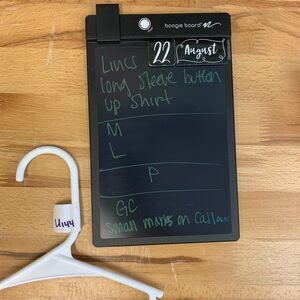 boogie board
22 August
Lincs
long sleeve button
up shirt
M
L
P
GC
small marks on Collar